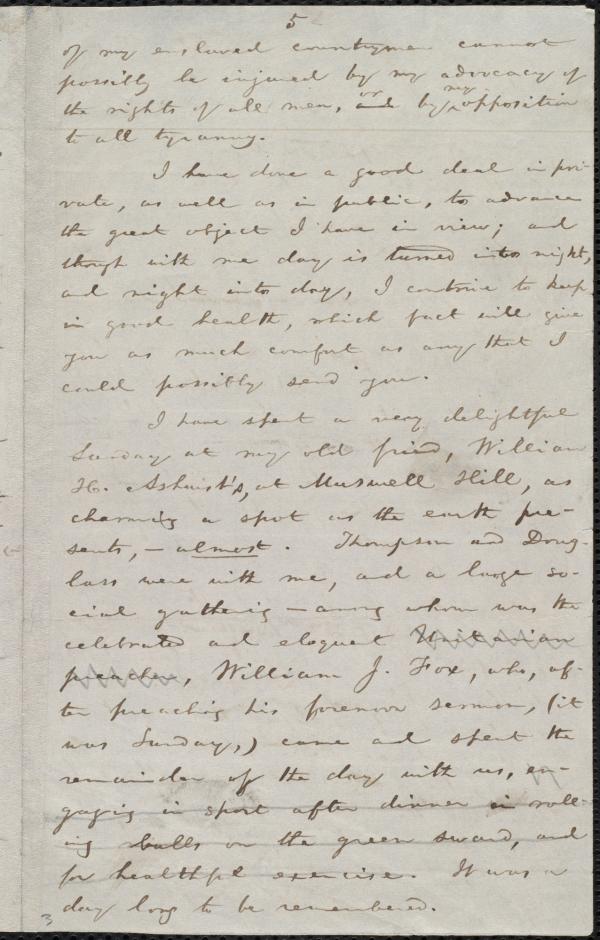 5
of my enslaved countrymen cannot
possibly be injured by my advocacy of
the rights of all men, and or by my opposition
to all tyranny.
I have done a good deal in pri-
vate, as well as in public, to advance
the great object I have in view; and
though with me day is turned into night,
and night into day, I contrive to keep
in good health, which fact will give
you as much comfort as any that I
could possibly send you.
I have spent a very delightful
Sunday at my old friend, William
H. Ashurst's, at Muswell Hill, as
charming a spot as the earth pre-
sents, — almost. Thompson and Doug-
lass were with me, and a large so-
cial gathering — among whom was the
celebrated and eloquent Unitarian
preacher, William J. Fox, who, af-
ter preaching his forenoon sermon, (it
was Sunday,) came and spent the
remainder of the day with us, en-
gaging in sport after dinner in roll-
ing balls on the green sward, and
for healthful exercise. It was a
day long to be remembered.
3